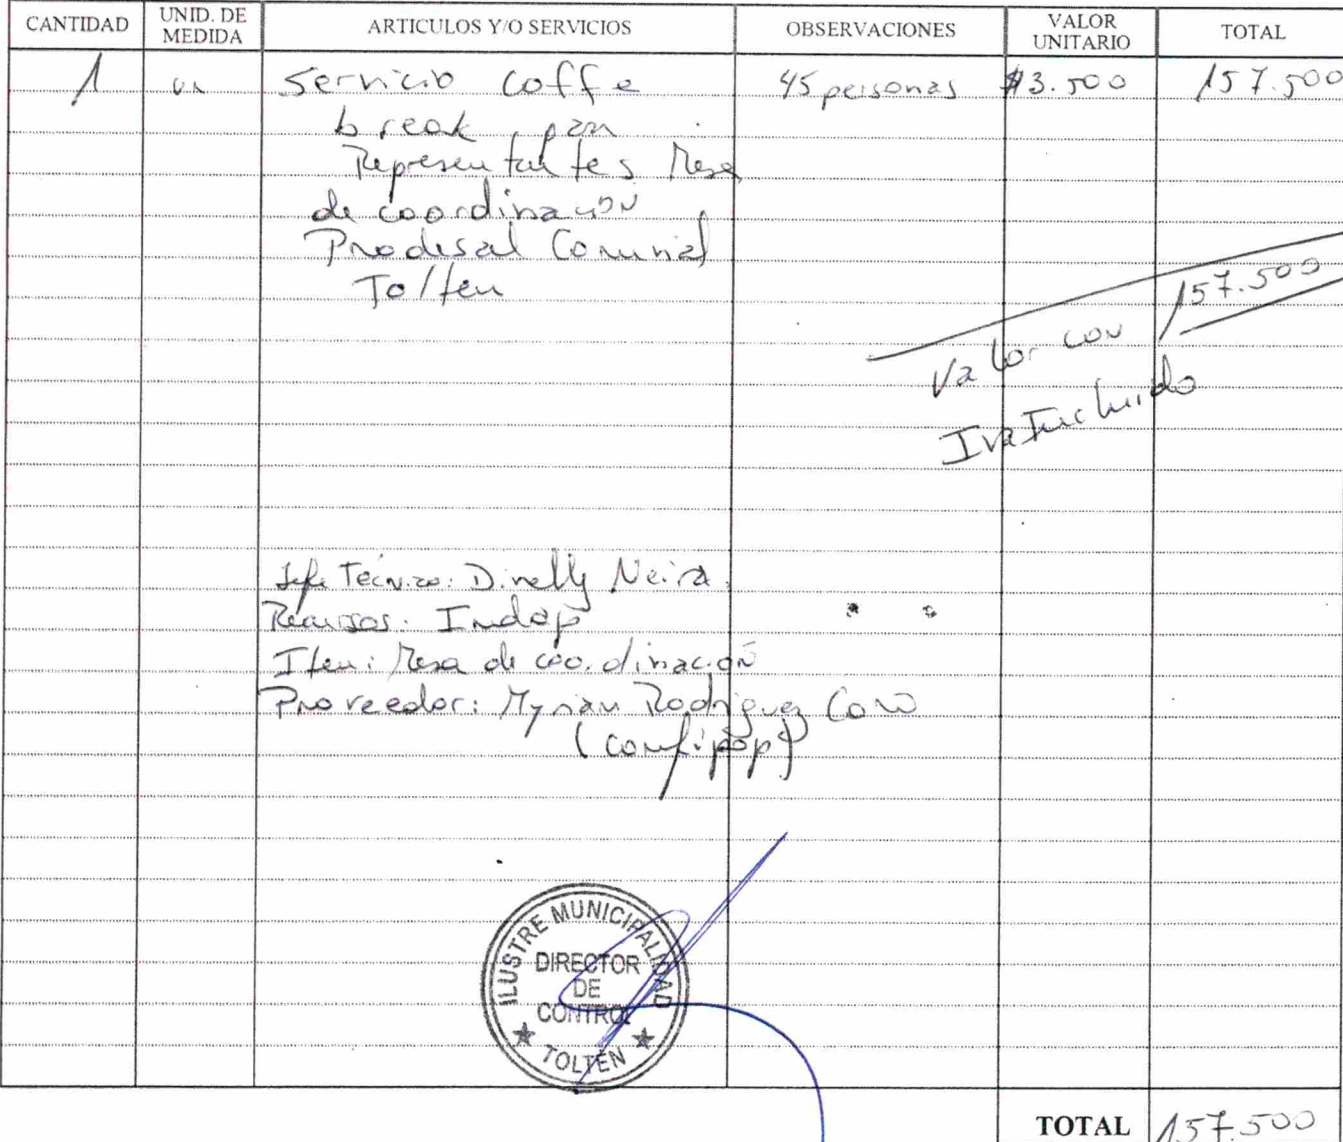 CANTIDAD UNID. DE MEDIDA ARTICULOS Y/O SERVICIOS OBSERVACIONES VALOR UNITARIO TOTAL
1 un Servicio coffe 45 personas $3.500 157.500
break para
Representantes Mesa
de coordinación
Prodesal Comunal
Tolten
157.500
Valor con
Iva Incluido
Jefe Técnico: Dinelly Neira.
Recursos: Indap
Item: Mesa de coordinación
Proveedor: Myriam Rodriguez Caro
(confipop)
ILUSTRE MUNICIPALIDAD
DIRECTOR
DE
CONTROL
TOLTÉN
TOTAL 157.500